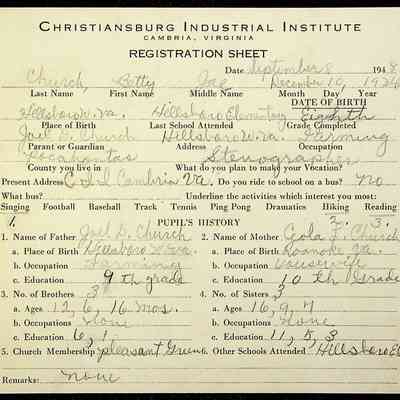 CHRISTIANSBURG INDUSTRIAL INSTITUTE
CAMBRIA, VIRGINIA
REGISTRATION SHEET
Date September 8 1948
Church, Betty Jae December 10, 1934
Last Name First Name Middle Name Month Day Year
DATE OF BIRTH
Hillsboro W. Va. Hillsboro Elementary Eighth
Place of Birth Last School Attended Grade Completed
Joel D. Church Hillsboro W. Va. Farming
Parent or Guardian Address Occupation
Pocahontas Stenographer
County you live in What do you plan to make your Vocation?
Present Address Cambria Va. Do you ride to school on a bus? No
What bus? Underline the activities which interest you most:
Singing Football Baseball Track Tennis Ping Pong Dramatics Hiking Reading
1. PUPIL'S HISTORY 2. 3.
1. Name of Father Joel D. Church 2. Name of Mother Gola F. Church
a. Place of Birth Hillsboro W. Va. a. Place of Birth Roanoke Va.
b. Occupation Farming b. Occupation Housewife
c. Education 9th grade c. Education 10th Grade
3. No. of Brothers 3 4. No. of Sisters 3
a. Ages 12, 6, 16 mos. a. Ages 16, 9, 7
b. Occupations None b. Occupations None
c. Education 6, 1 c. Education 11, 5, 3
5. Church Membership pleasant Green 6. Other Schools Attended Hillsboro El
Remarks: none